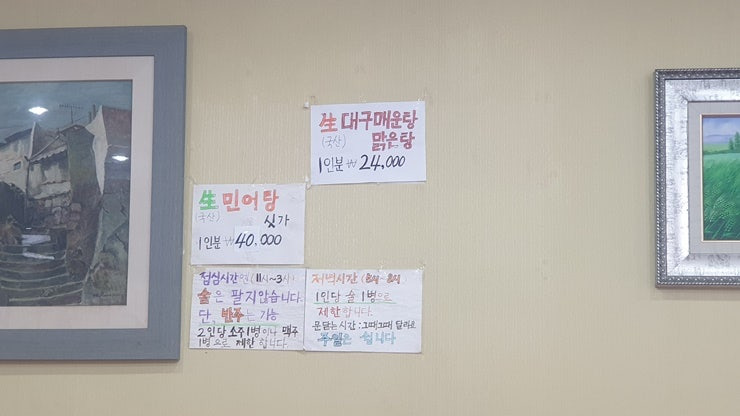 生 대구매운탕
(국산) 맑은탕
1인분 ₩ 24,000
生 민어탕
(국산) 싯가
1인분 ₩ 40,000
점심시간엔 (11시~3시)
술은 팔지않습니다.
단, 반주는 가능
2인당 소주1병이나 맥주
1병으로 제한합니다.
저녁시간
1인당 술 1병으로
제한합니다.
문닫는시간 : 그때그때 달라요
은 쉽니다